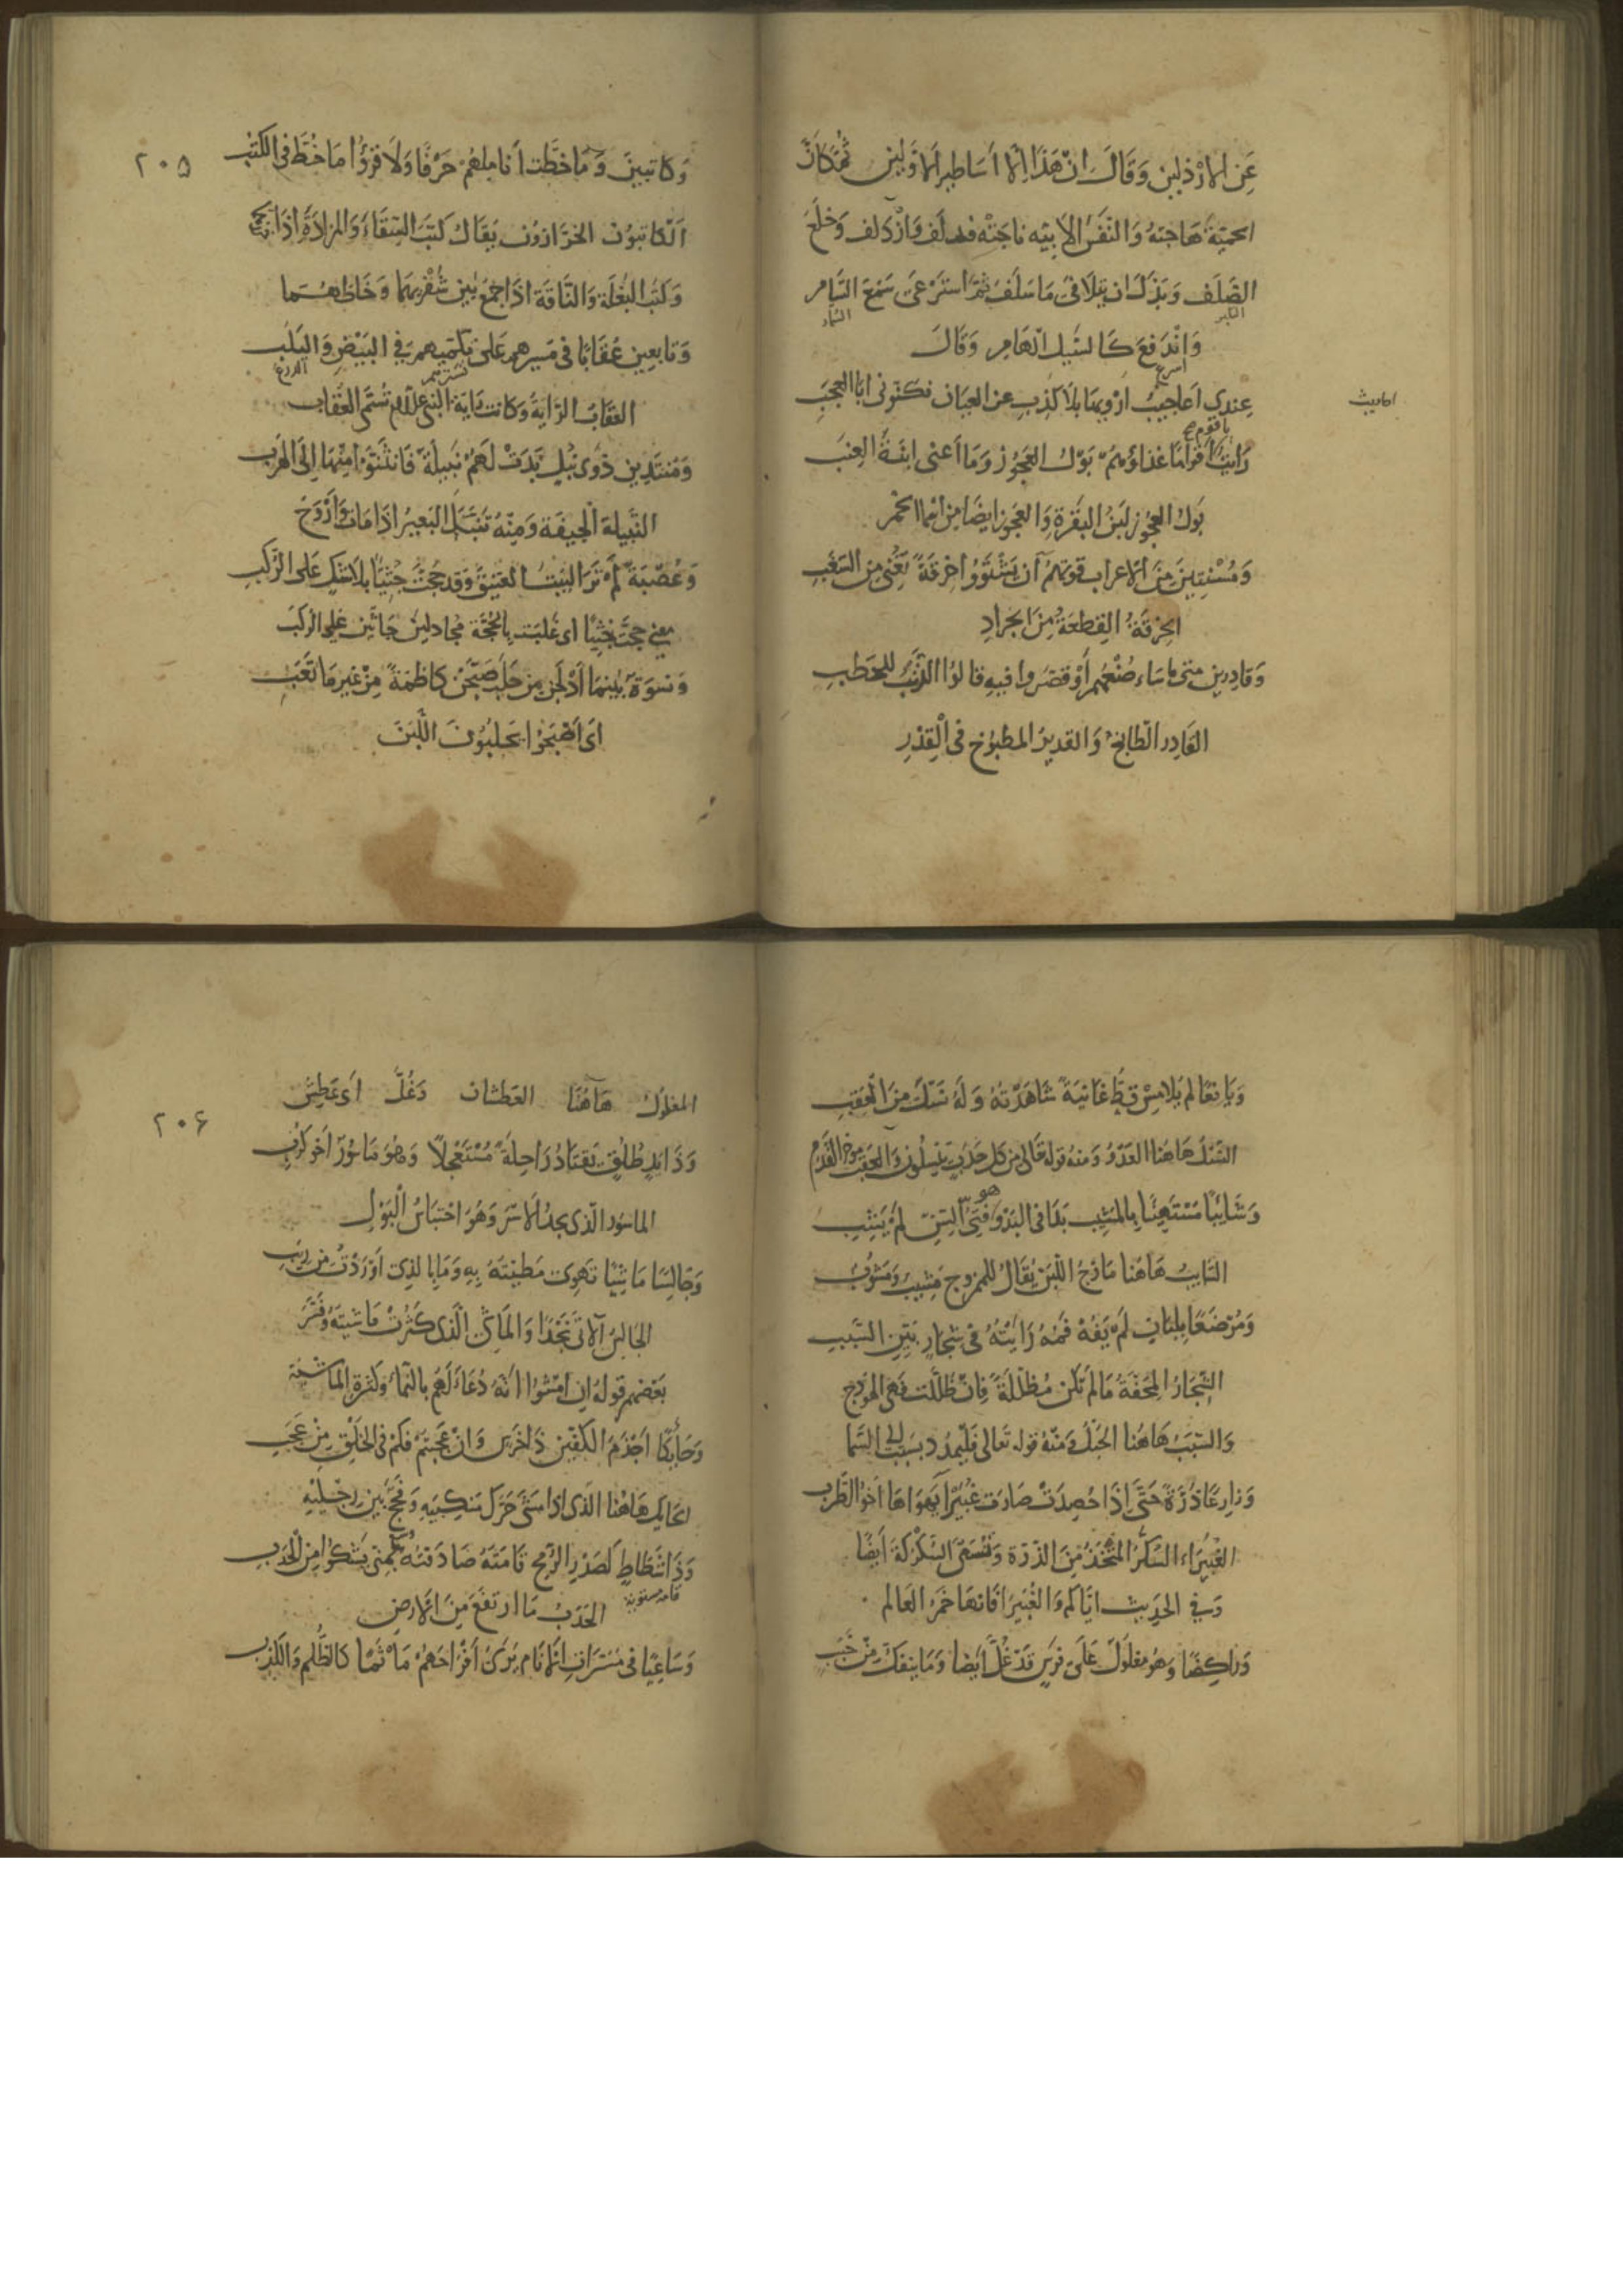 عَنِ الارْذلين وَقَالَ اِنّ هَذَا اِلّا اَسَاطِير الاَوّلين ثمّ كانّ
الحميّةَ هَاجته وَالنّفسَ الابيّه ناجَتْه فدلف وَازْدلف وَخلَعَ
الصّلف وَبَذلَ ان يتلافى مَا سَلفَ ثمّ استرعى سَمْعَ السَّامر
وَانْدَفعَ كَالسَّيل الهَامر وَقالَ
اسرع
احاديث
عِندى اَعاجيبُ ارْويهَا بلَا كَذِبِ عن العيَان فكَنّونى ابَا العجَبِ
يا قوم
رَايتُ اقوامًا غذاؤهمُ بَوْل العَجُوز وَمَا أعنى ابنَةَ العِنَب
بَول العجوز لبَن البقرَةِ وَالعجوز ايضًا من اسْما الخمر
وَمُسْنتِينَ مِنَ الاعراب قوتهُم اَن يَشْتوُوا خرقَةً تغْنى من السّغَبِ
الخِرْقَةُ القِطعَةُ مِنَ الجَرادِ
وَقادِرين متى ماسَاء صُنعُهم أوْ قصّرُوا فيهِ قالُوا الذّنْبُ للحَطبِ
القَادِر الطّابخُ وَالقَديرُ المَطبُوخ فى القِدْرِ
٢٠٥
وَكاتِبينَ وَمَا خطّت اَنامِلهُمْ حَرْفًا وَلَا قرَؤُا مَا خُطَّ فى الكتُب
الكَاتبُونَ الخرّازُون يقَال كَتَبَ السّقَاءَ وَالمزَادَةَ اذا
وَكتَبَ البغلَة وَالنّاقَة اذا جَمعَ بين شُفْريهَا وَخَاطهُما
وَتابعِين عُقابًا فى مَسِيرهم عَلى تكمّيهم فى البَيْضِ وَاليَلَبِ
العُقابُ الرَّايةُ وَكانت رَاية النبى علام تُسَمّى العُقابَ
وَمُنتدين ذَوى نُبلٍ بَدَتْ لَهُمُ نَبيلَةٌ فَانثَنَوْا مِنْهَا اِلَى الهَربِ
النّبيلَة الجيفَة وَمِنْهُ تنبّلَ البَعيرُ اذا مَات وَأرْوَحَ
وَعُصْبَةً لَم تَرَ البَيتَ العتيق وَقدْ حَجّتْ جُثِيًّا بلا شكٍ عَلى الرّكبِ
معنى حجّت جُثِيًّا اى غَلبَت بالحُجّة مجَادلين جَاثين على الركَب
وَنسوَة بَعْدمَا ادْلجن مِن حَلَبٍ صبّحن كاظمَةً مِنْ غيرِ مَا تَعَب
اى اَصْبَحوا يحَلبُونَ اللّبَن
وَيَافعًا لم يُلامِسْ قطّ غَانيَةً شَاهَدْتهُ وَلَهُ نَسْل مِنَ العَقِبِ
النّسْل هَاهنا العَدْوُ وَمنهُ قوله تعالى من كل حَدَبٍ يَنسِلُون وَالعَقب مؤخر القَدَم
وَشَائبًا غير مُخْفٍ بِالمَشِيب بَدَا فى البَدْو وهو فَتىّ السِنّ لَم يَشِبِ
الشّايبُ هَاهنا مَازجُ اللّبَن يُقال للمزُوج مَشِيبٌ وَمَشُوبٌ
وَمُرضَعًا بلِبَانٍ لَمْ يَفُهْ فَمُهُ رَايْتُهُ فى شِجَارٍ بَيّنِ السَّبَبِ
الشّجَارُ المِحَفّةُ مَا لم تكن مُظلّلَةً فَان ظُلّلت فَهى الهَوْدج
وَالسَّبَبُ هَاهُنا الحَبْلُ وَمنهُ قوله تعَالى فَليَمدُد بسَببٍ الى السَّما
وَزارعًا ذُرَةً حَتَّى اِذَا حُصِدَتْ صَارت غُبَيرَا يَهوَاهَا اَخو الطَّرب
الغُبَيرَاء السَّكَرُ المتّخَذُ مِنَ الذّرَة وَتُسَمّى السّكرْكة اَيضًا
وَفى الحَدِيث ايّاكم وَالغُبَيرَا فَانهَا خَمرُ العَالم
وَرَاكِضًا وَهُوَ مَغلولٌ عَلَى فَرَسٍ قَد غُلَّ اَيضًا وَمَا ينفكّ مِنْ خَبَبِ
٢٠۶
المغلول هَاهُنا العَطشَان وَغُلَّ اَى عَطِشَ
وَذَا يَدٍ طُلُقٍ يَقتَادُ رَاحِلَةً مُسْتَعْجِلًا وَهُوَ مَاسُورٌ اَخو كُرَب
المَاسُور الّذى بِهِ الاُسْرُ وَهُوَ احْتبَاسُ الْبَوْلِ
وَجَالِسًا مَاشِيًا تَهوِى مَطيّتهُ بِهِ وَمَا بِالذِى اَوْرَدْتُ مِن رِيَب
الجَالسُ الآتى نَجْدًا وَالمَاشى الّذى كَثُرَتْ مَاشيتُهُ وَفَسَّر
بَعضهم قوله ان امْشُوا انهُ دُعَاءٌ لَهُم بالنّماء وَكثرةِ المَاشيَة
وَحَائِكًا اَجْذمَ الكَفّين ذَا خَرَسٍ وَانْ عَجبتمُ فكَمْ فى الخَلْقِ مِنْ عَجَب
الحَايك هَاهُنا الّذى اذا مَشَى حَرّك مَنكِبَيهِ وَفَحّجَ بَين رِجْلَيْهِ
وَذَا شَطَاطٍ كَصَدْرِ الرّمح قَامَتُهُ صَادَفتُهُ بمِنًى يَشكُوا مِنَ الحَدَب
الحَدَبُ مَا ارتفَعَ مِنَ الارضِ
وَسَاعِيًا فى مَسَرّاتِ الاَنام يَرَى اِفْرَاحَهُمْ مَأثَمًا كالظّلم وَالكَذِبِ